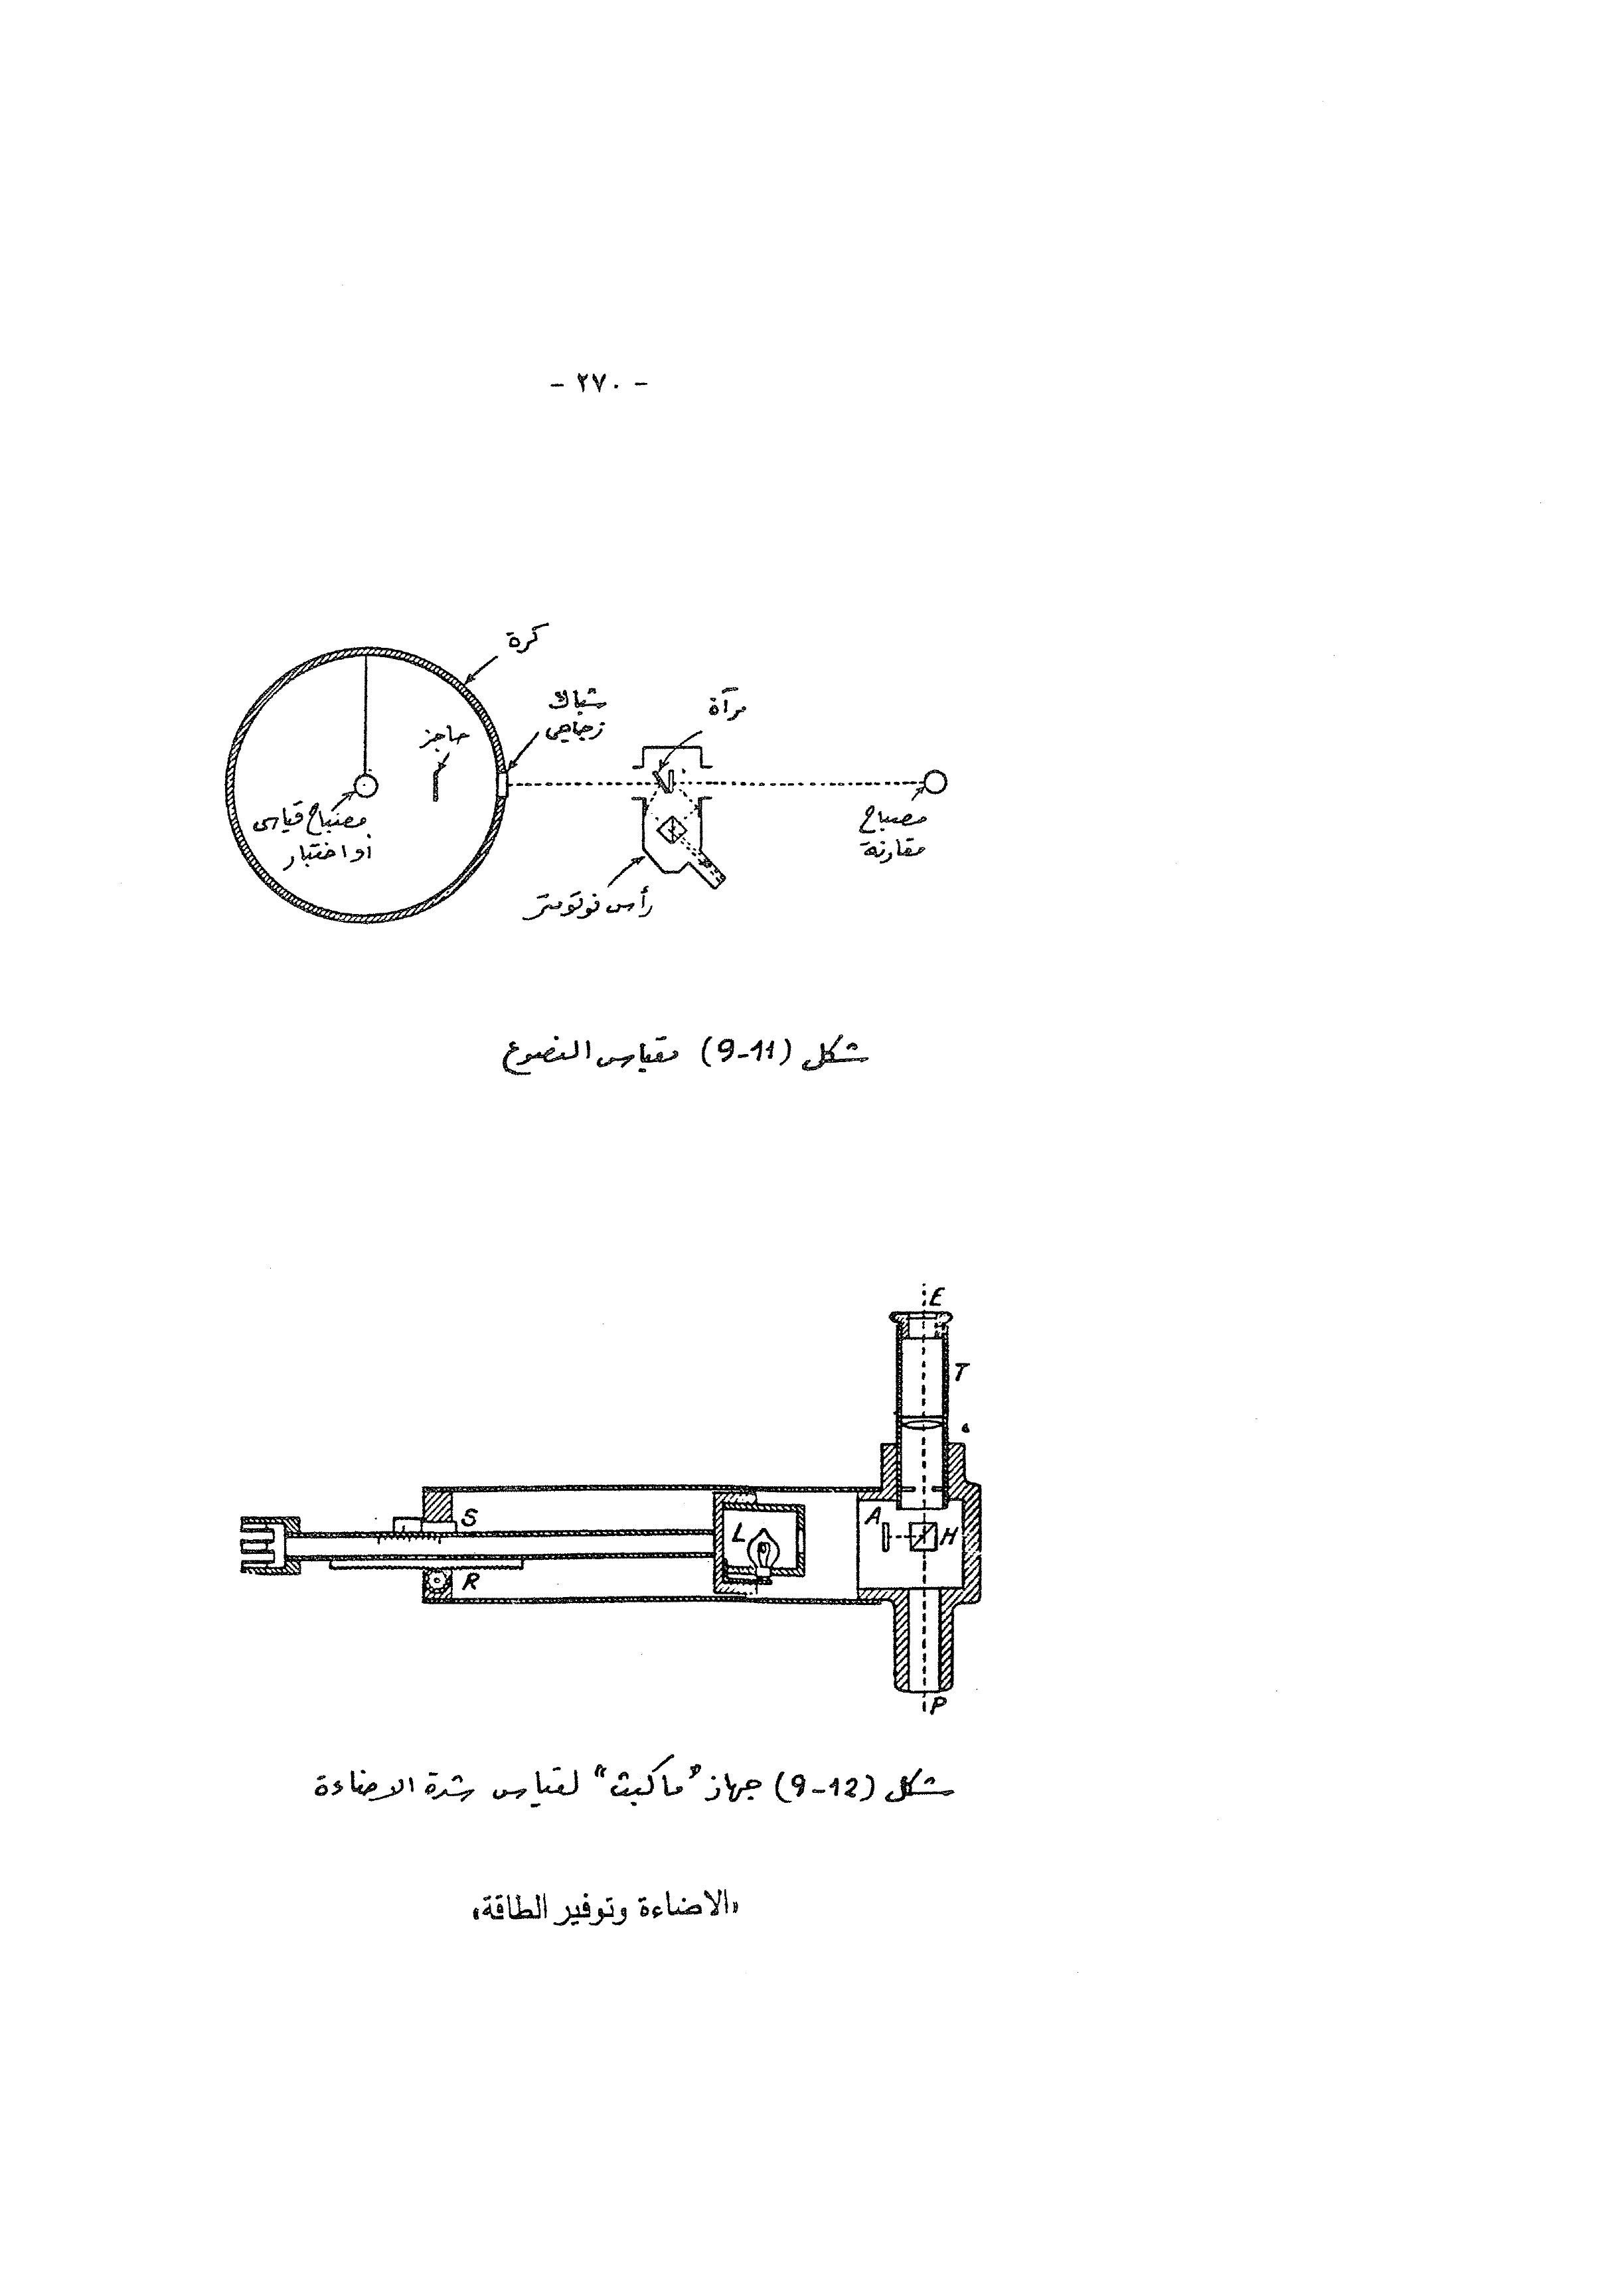 - ٢٧٠ -
كرة
شباك
زجاجي
مرآة
حاجز
مصباح قياسي
أو اختبار
مصباح
مقارنة
رأس فوتومتر
شكل (9-11) مقياس النصوع
E
T
S
A
L
H
R
P
شكل (9-12) جهاز "ماكبث" لقياس شدة الاضاءة
«الاضاءة وتوفير الطاقة»